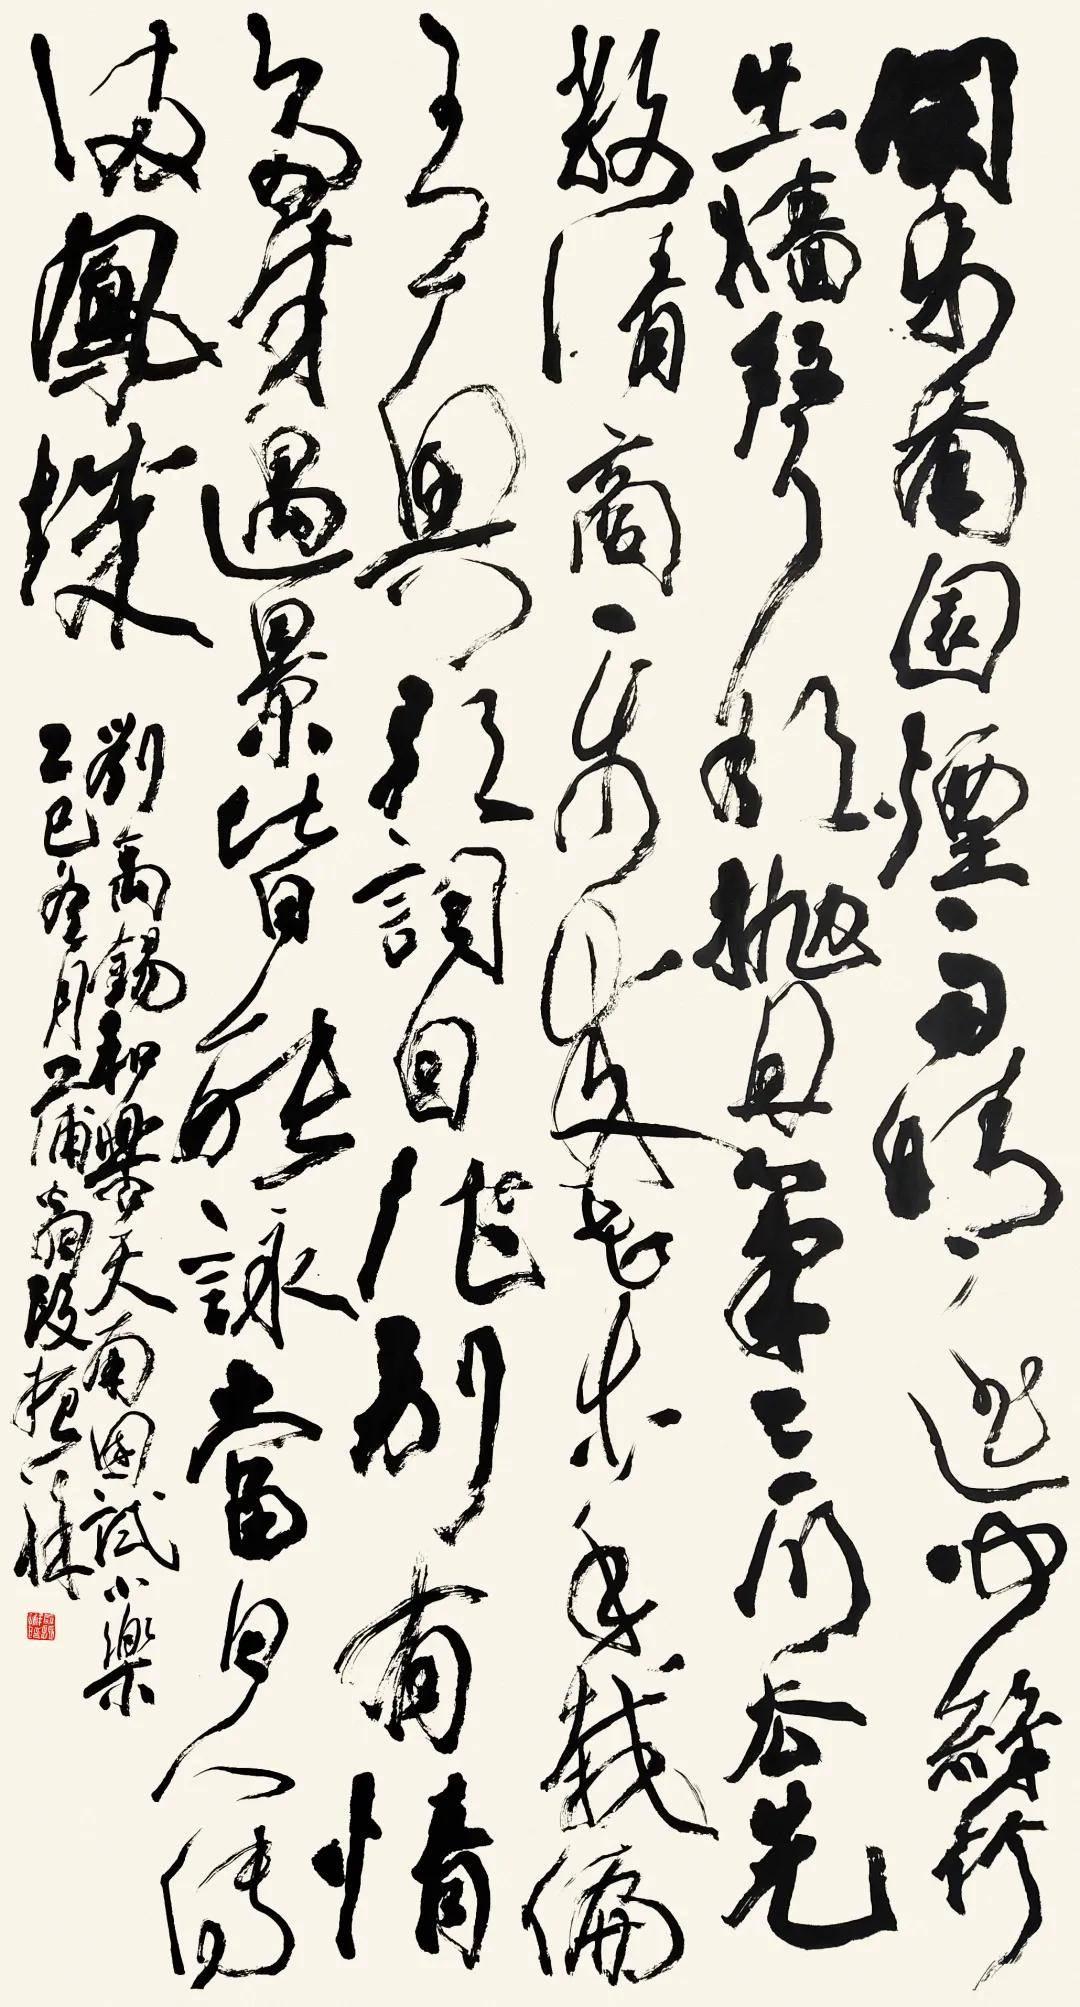 閑步南園煙雨晴遥聞絲竹
出墻聲欲抛丹筆三川去先
教清商一部成花木手栽偏
興歌詞自作別有情
多才遇景皆能詠當日人傳
滿鳳城
劉禹錫和樂天南園試小樂
乙巳冬月浦翁段祥